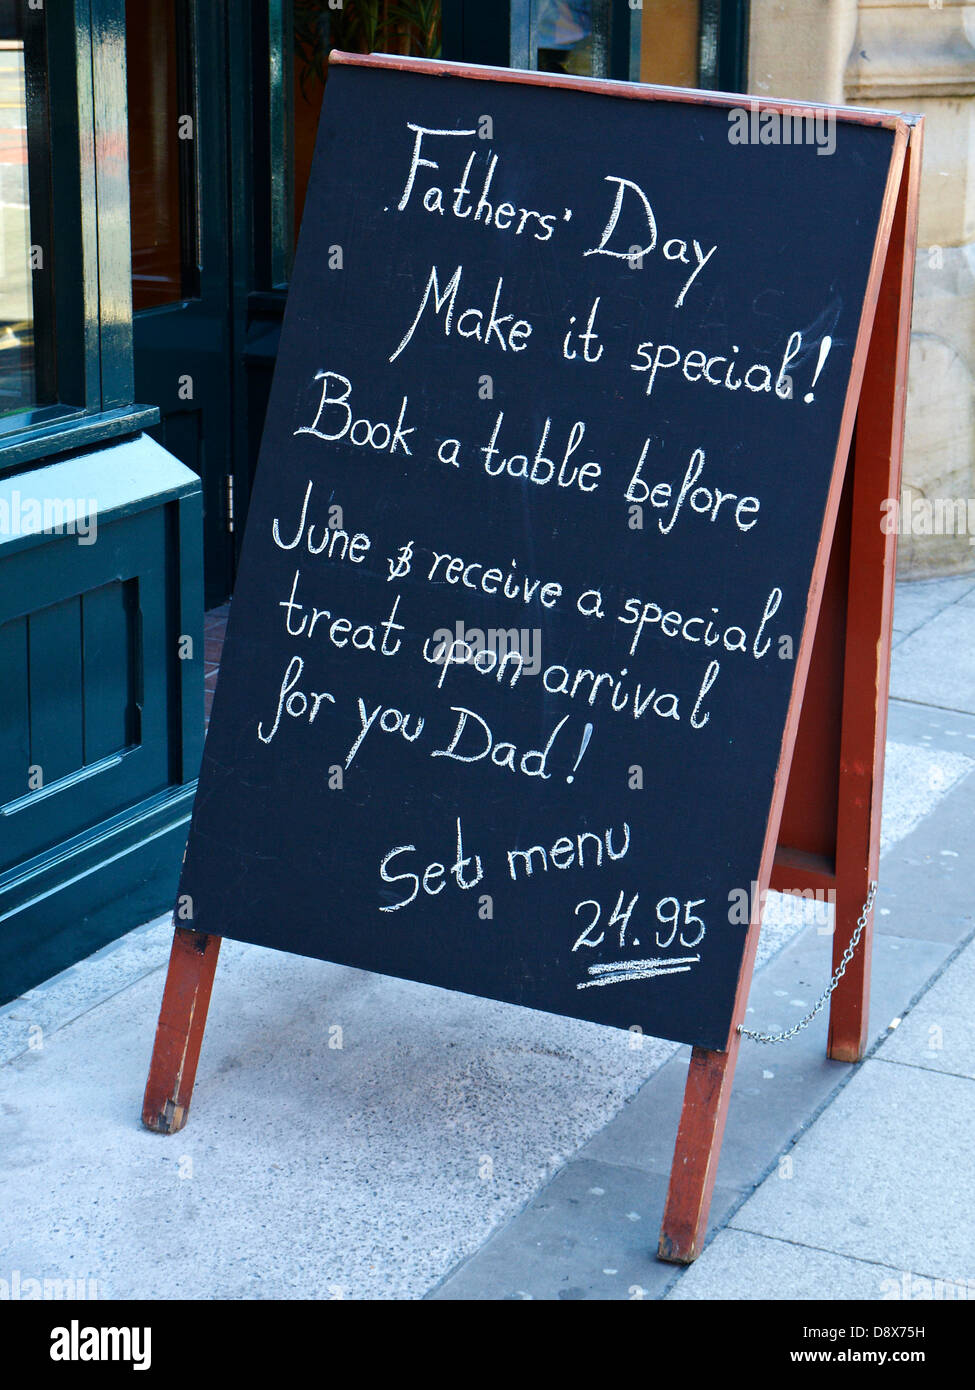 Fathers' Day
Make it special!
Book a table before
June & receive a special
treat upon arrival
for you Dad!
Set menu
24.95
alamy
alamy stock photo
D8X75H
www.alamy.com